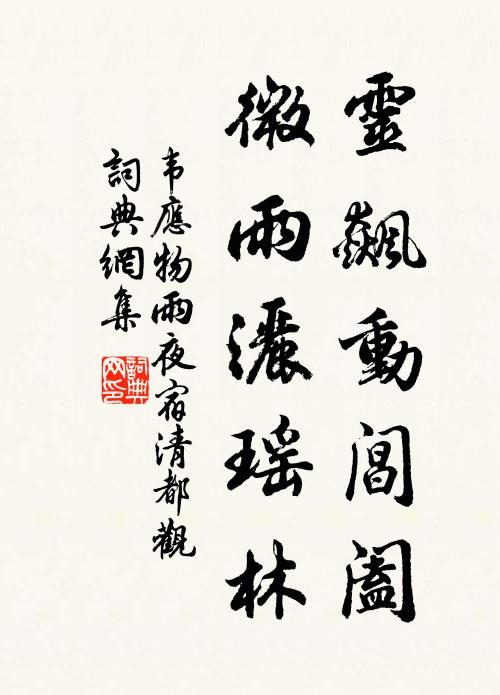 靈飆動閶闔
微雨灑瑶林
韦應物雨夜宿清都觀
詞典網集
詞典网印